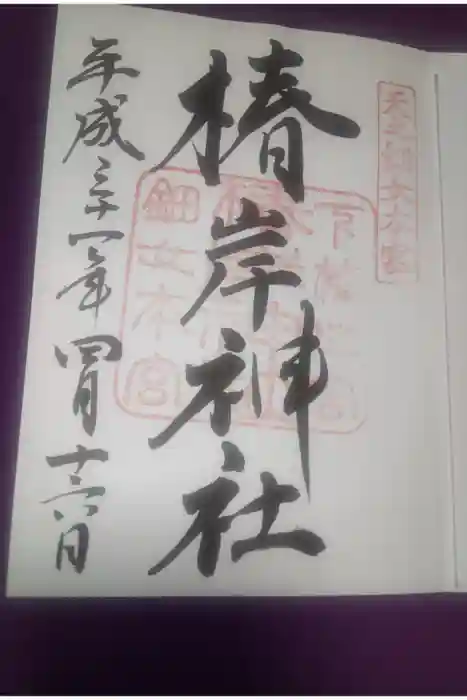 天之鈿女本宮
椿岸神社
鈿女本宮
平成三十一年四月十六日